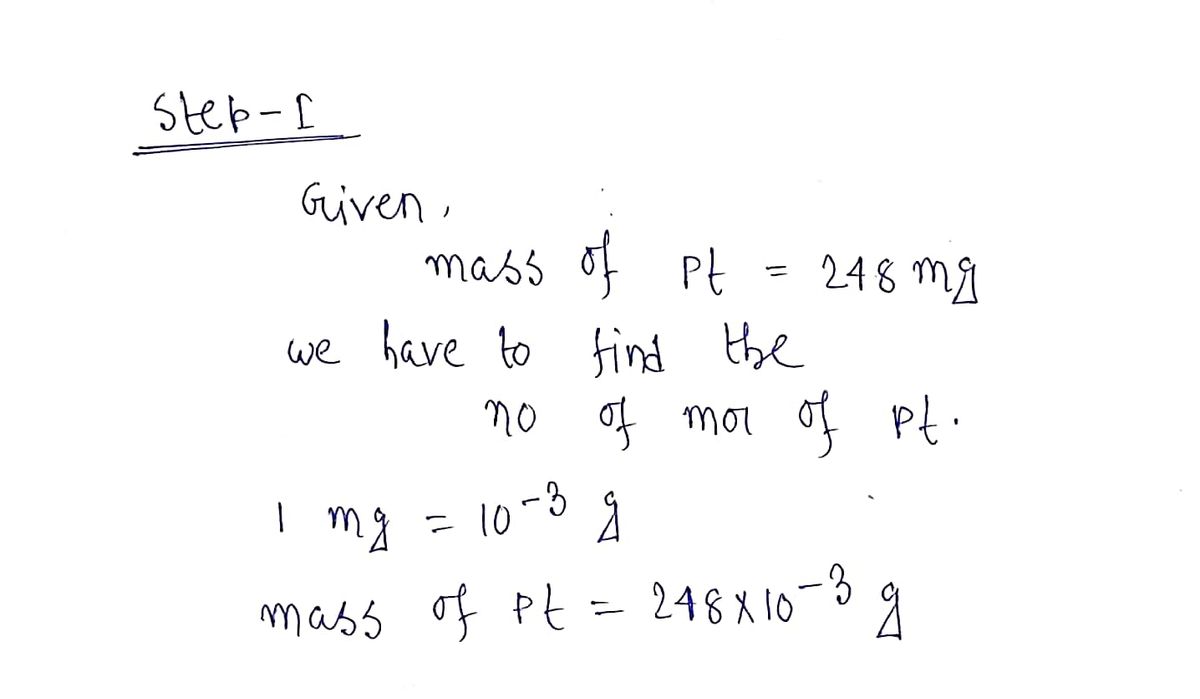 Step-I
Given,
mass of Pt = 248 mg
we have to find the
no of mol of pt.
1 mg = 10⁻³ g
mass of Pt = 248×10⁻³ g